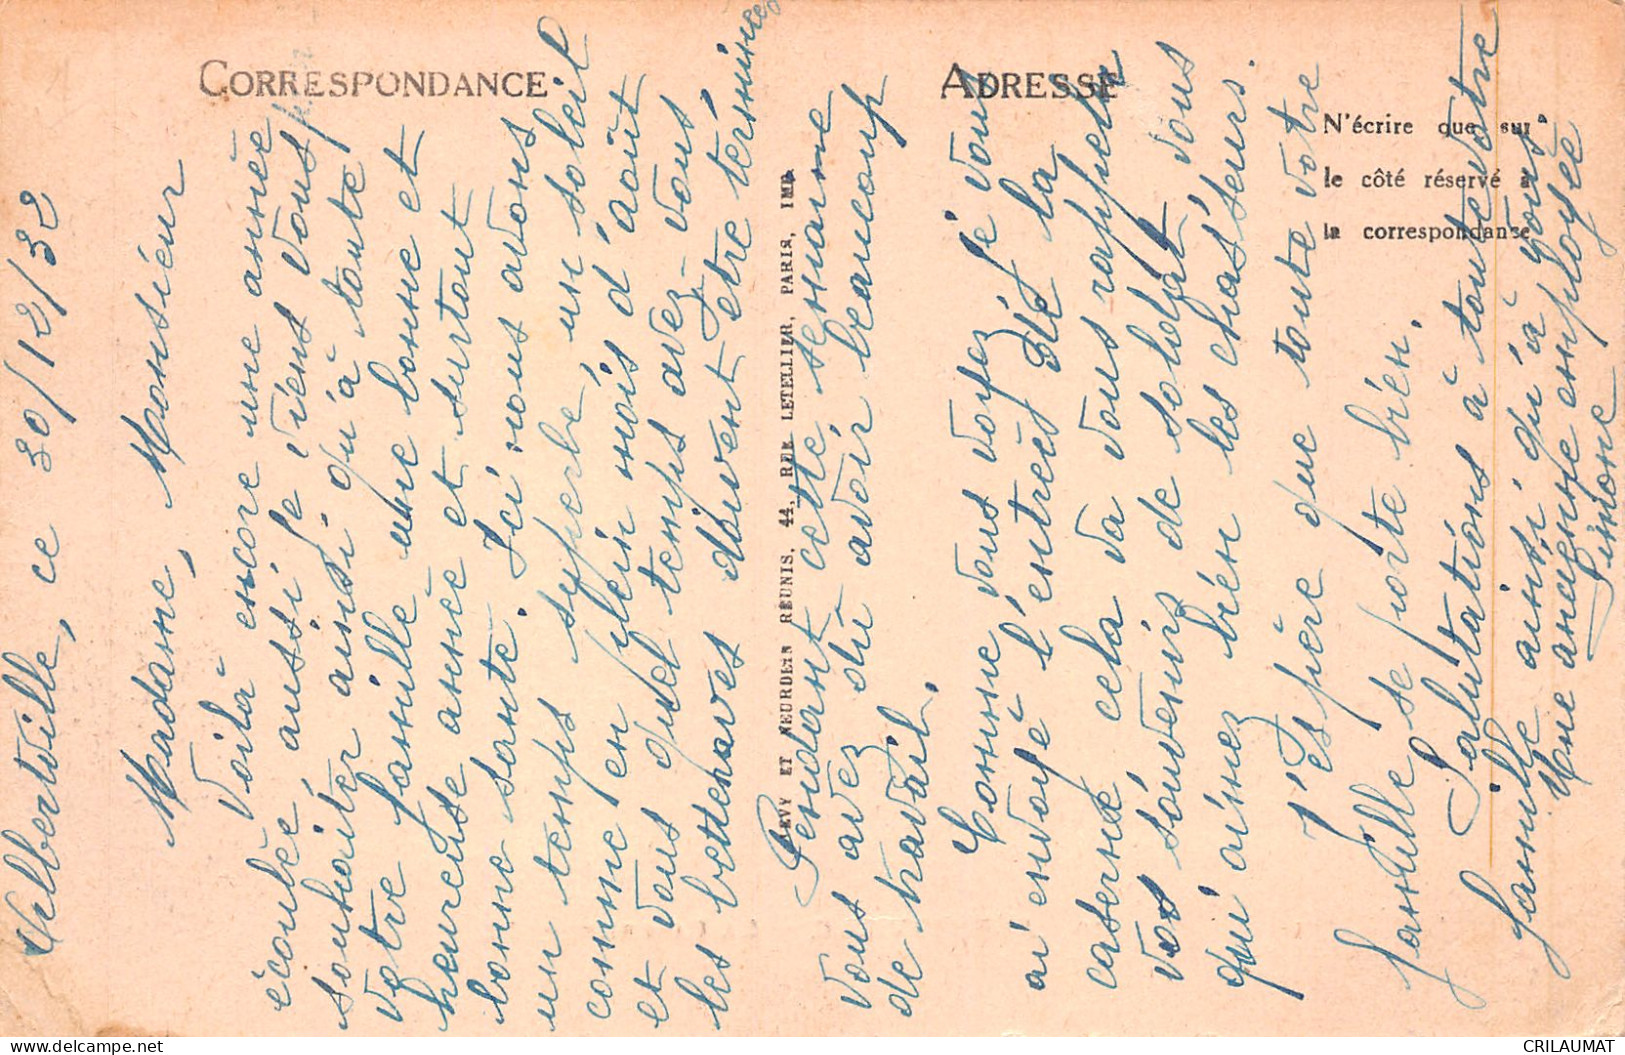 CORRESPONDANCE
ADRESSE
N'écrire que sur
le côté réservé à
la correspondance
LEVY ET NEURDEIN RÉUNIS, 44, RUE LETELLIER, PARIS, IMP.
Albertville, ce 30/12/32
Madame, Monsieur
Voila encore une année
écoulée, aussi je viens vous
souhaiter ainsi qu'à toute
votre famille une bonne et
heureuse année et surtout
bonne santé. Ici nous avons
un temps superbe, un soleil
comme en plein mois d'août
et vous quel temps avez-vous,
les betteraves doivent être terminées
Pendant cette semaine
vous avez dû avoir beaucoup
de travail.
Comme vous voyez je vous
ai envoyé l'entrée de la
caserne cela va vous rappeler
vos souvenirs de soldat, vous
qui aimez bien les chasseurs.
J'espère que toute votre
famille se porte bien.
Salutations à toute votre
famille ainsi qu'à vous
Une ancienne employée
Simone
CRILAUMAT